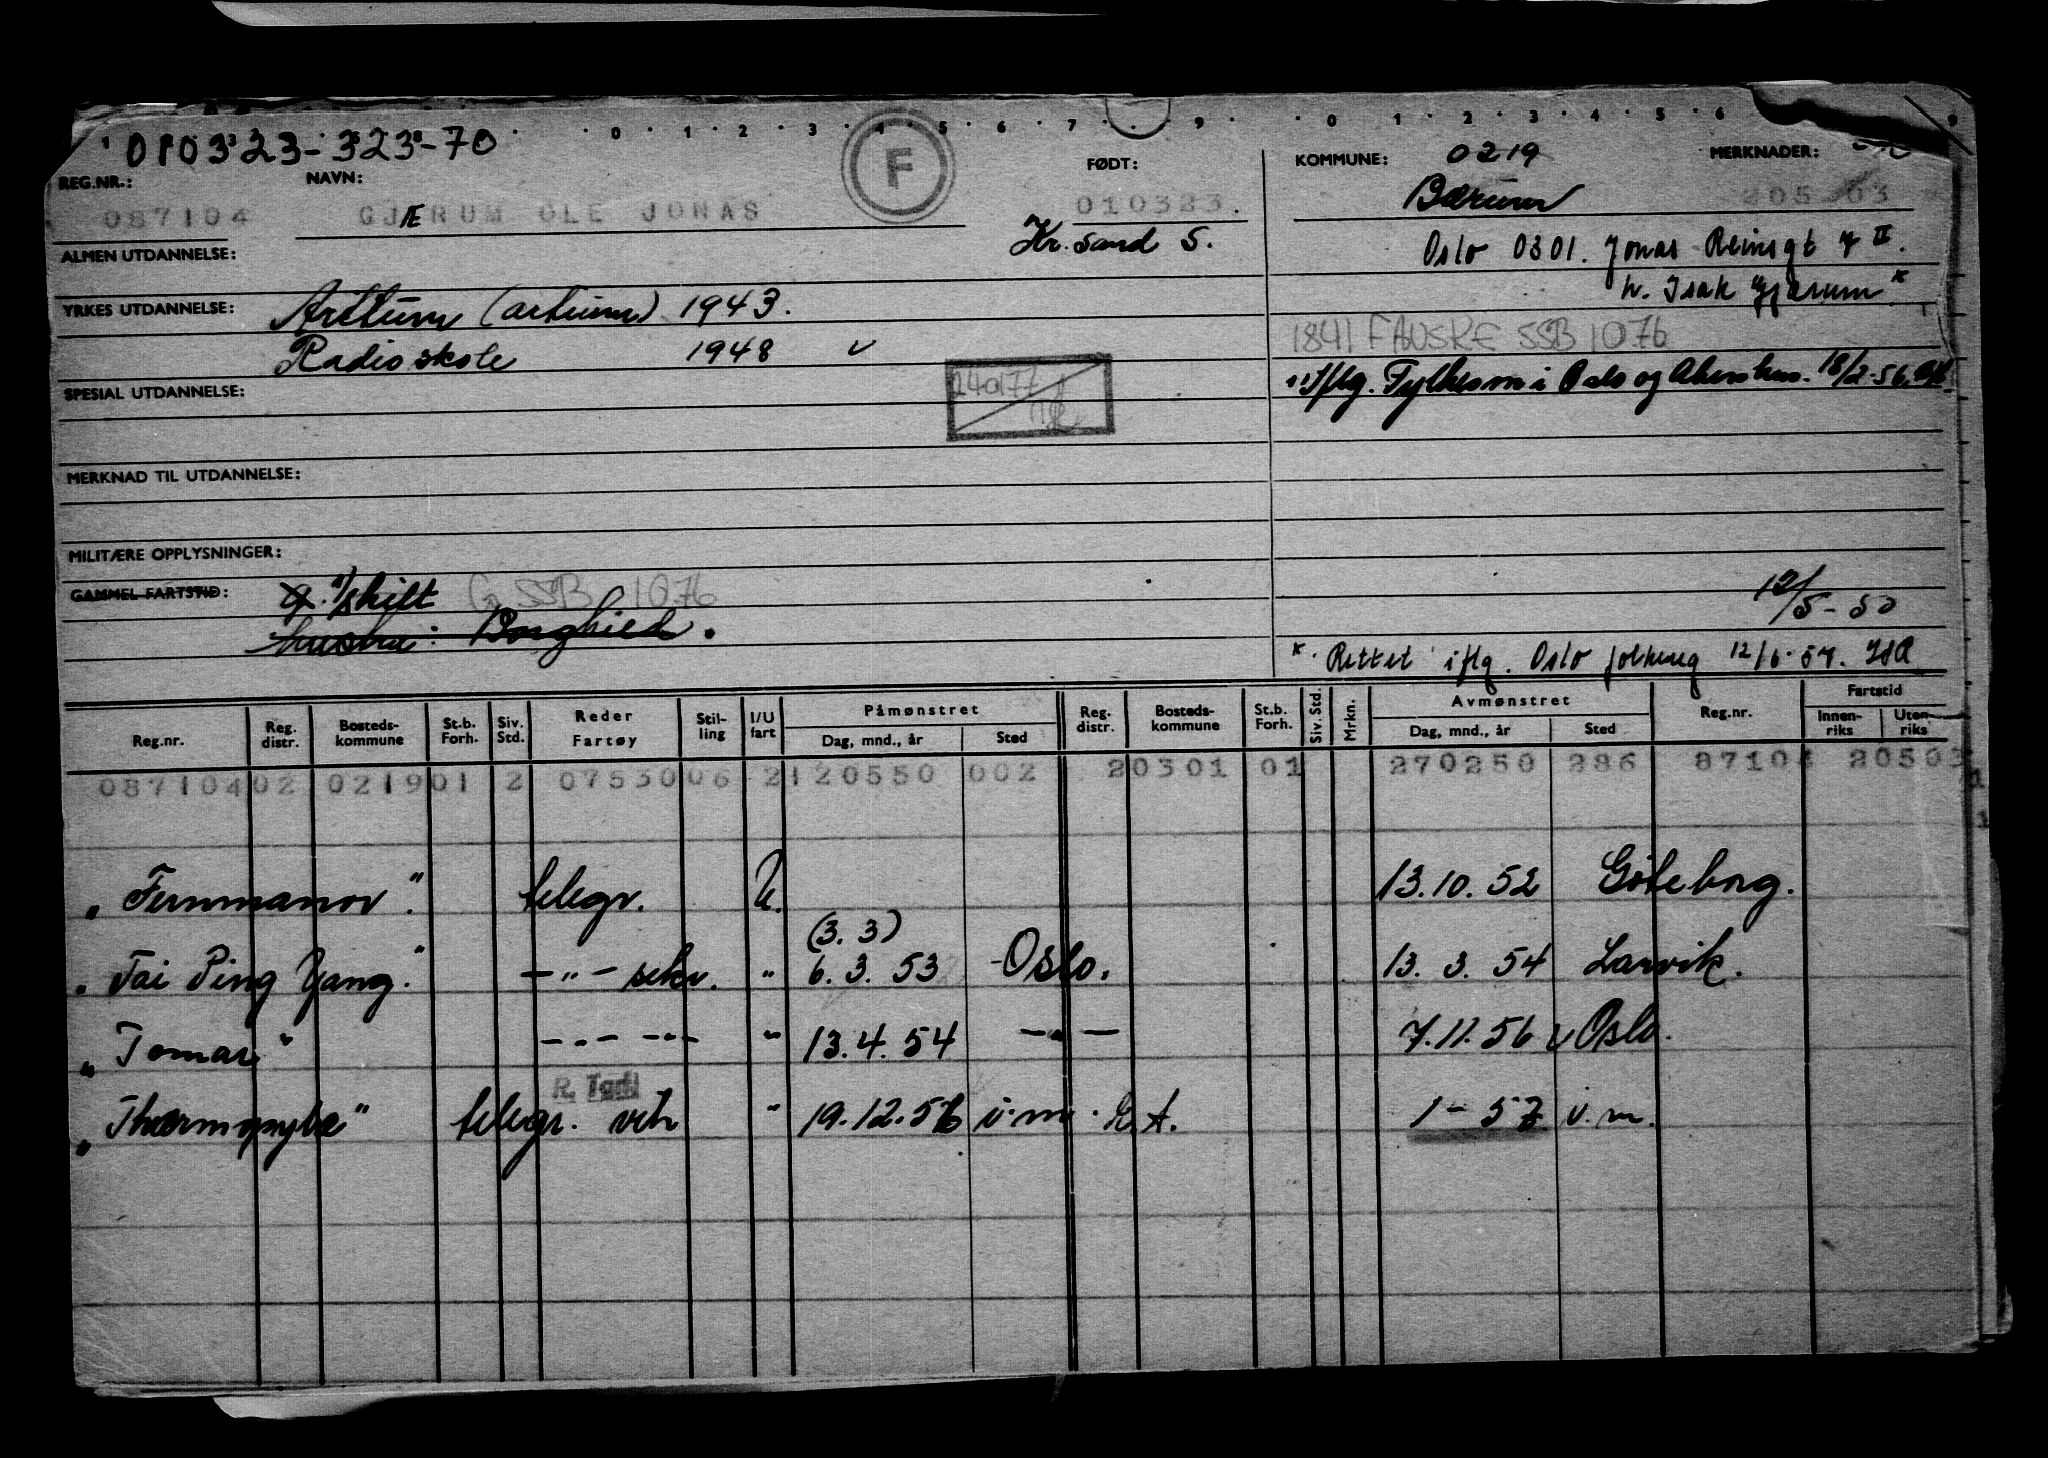 0 1 2 3 4 5 6 7 9 0 1 2 3 4 5 6 9
010323-323-70
F
REG.NR.: NAVN: FØDT:
087104 GJÆRUM OLE JONAS 010323.
Kr. sand S.
ALMEN UTDANNELSE:
YRKES UTDANNELSE: Artium (artium) 1943.
Radioskole 1948 v
SPESIAL UTDANNELSE:
240177
MERKNAD TIL UTDANNELSE:
MILITÆRE OPPLYSNINGER:
GAMMEL FARTSTID: g. s/skilt G SSB 1076
hustru: Borghild.
KOMMUNE: 0219 MERKNADER:
Bærum 205 03
Oslo 0301. Jonas Reinsgt 7 II.
h. Isak "Gjærum"x
1841 FAUSKE SSB 1076
iflg. Fylkesm i Oslo og Akershus. 18/2-56.
12/5-50
x. Rettet iflg. Oslo folkereg 12/6-57.
Reg.nr. Reg. distr. Bosteds-kommune St.b. Forh. Siv. Std. Reder Fartøy Stil-ling I/U fart Påmønstret Dag, mnd., år Sted Reg. distr. Bosteds-kommune St.b. Forh. Siv. Std. Mrkn. Avmønstret Dag, mnd., år Sted Reg.nr. Fartstid Innen-riks Uten-riks
087104 02 0219 01 2 07530 06 2 120550 002 2 0301 01 270250 286 87104 20503
„Fernmanor" telegr. U. 13.10.52 Göteborg.
(3. 3)
„Tai Ping Yang" -„- sekr. " 6. 3. 53 Oslo. 13. 3. 54 Larvik.
„Tomar" -„- -„- " 13.4.54 -„- 7.11.56 v Oslo.
R. Tgrf
„Thermopylæ" telegr. vik " 19.12.56 u.m. E.A. 1-57 u.m.